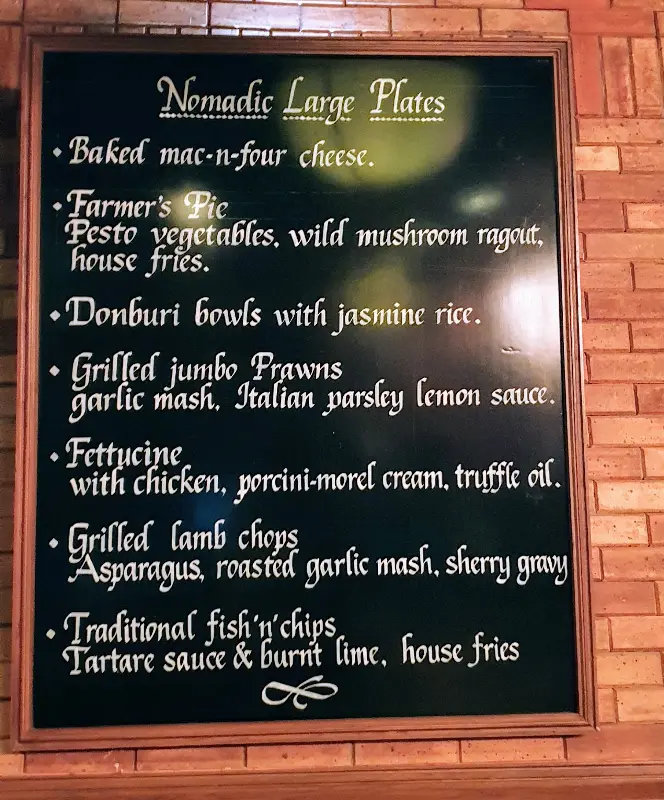 Nomadic Large Plates
• Baked mac-n-four cheese.
• Farmer's Pie
Pesto vegetables, wild mushroom ragout,
house fries.
• Donburi bowls with jasmine rice.
• Grilled jumbo Prawns
garlic mash, Italian parsley lemon sauce.
• Fettucine
with chicken, porcini-morel cream, truffle oil.
• Grilled lamb chops
Asparagus, roasted garlic mash, sherry gravy
• Traditional fish'n'chips
Tartare sauce & burnt lime, house fries